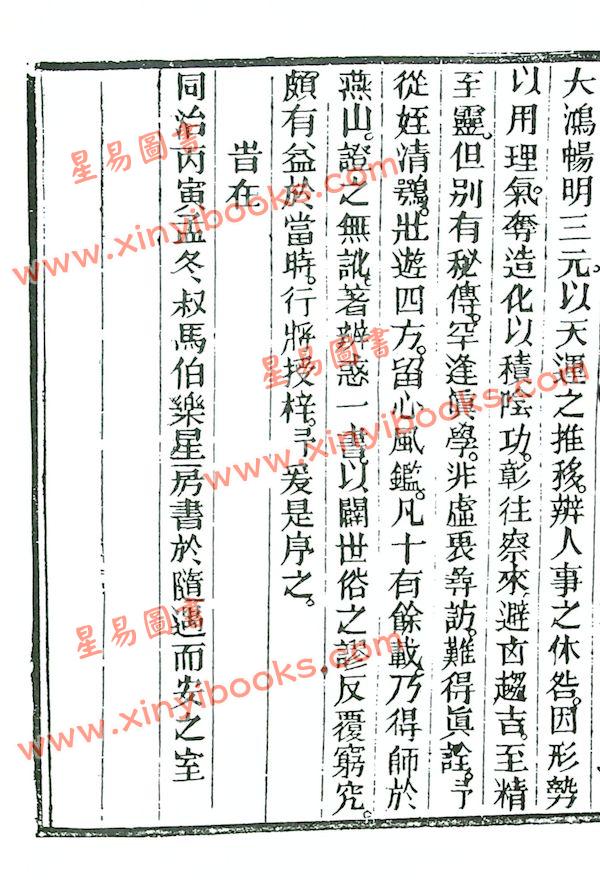 大鴻暢明三元。以天運之推移。辨人事之休咎。因形勢
以用理氣。奪造化以積陰功。彰往察來。避凶趨吉。至精
至靈。但別有秘傳。罕逢眞學。非虛衷尋訪。難得眞詮。予
從姪清鶚。壯遊四方。留心風鑑。凡十有餘載。乃得師於
燕山。證之無訛。著辨惑一書。以闢世俗之謬。反覆窮究。
頗有益於當時。行將授梓。予爰是序之。
旹在
同治丙寅孟冬叔馬伯樂星房書於隨遇而安之室
星易圖書
www.xinyibooks.com
星易圖書
www.xinyibooks.com
星易圖書
www.xinyibooks.com